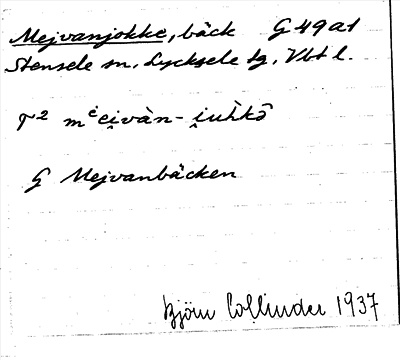 Mejvanjokke, bäck G 49 a1
Stensele sn, Lycksele lg, Vbt l.
T²
G Mejvanbäcken
Björn Collinder 1937